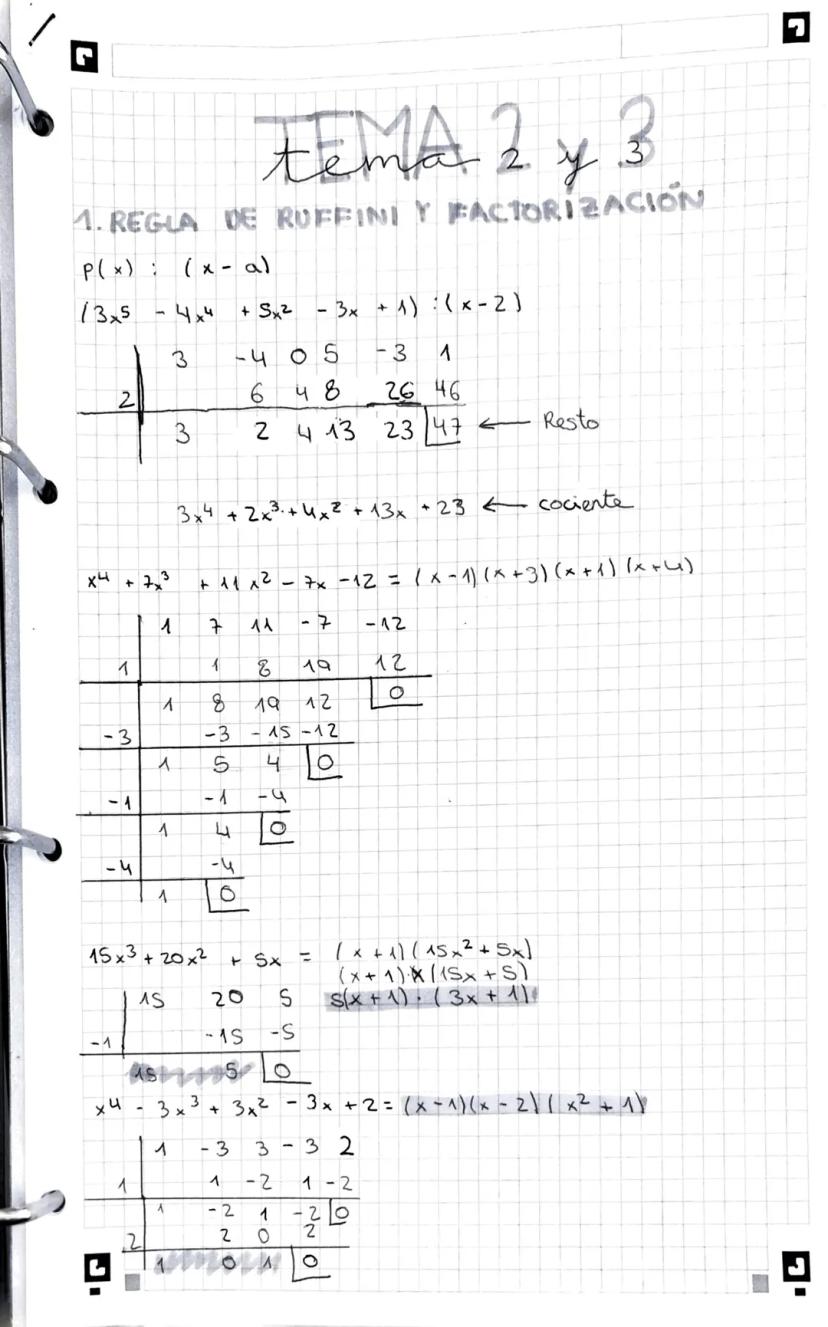 TEMA 2 y 3
tema 2 y 3
1. REGLA DE RUFFINI Y FACTORIZACIÓN
P(x) : (x - a)
(3x⁵ - 4x⁴ + 5x² - 3x + 1) : (x - 2)
3 -4 0 5 -3 1
2 6 4 8 26 46
3 2 4 13 23 47 ← Resto
3x⁴ + 2x³ + 4x² + 13x + 23 ← cociente
x⁴ + 7x³ + 11x² - 7x - 12 = (x - 1) (x + 3) (x + 1) (x + 4)
1 7 11 -7 -12
1 1 8 19 12
1 8 19 12 0
-3 -3 -15 -12
1 5 4 0
-1 -1 -4
1 4 0
-4 -4
1 0
15x³ + 20x² + 5x = (x + 1) (15x² + 5x)
(x + 1) · x (15x + 5)
15 20 5 5(x + 1) · (3x + 1)
-1 -15 -5
15 5 0
x⁴ - 3x³ + 3x² - 3x + 2 = (x - 1)(x - 2) (x² + 1)
1 -3 3 -3 2
1 1 -2 1 -2
1 -2 1 -2 0
2 2 0 2
1 0 1 0